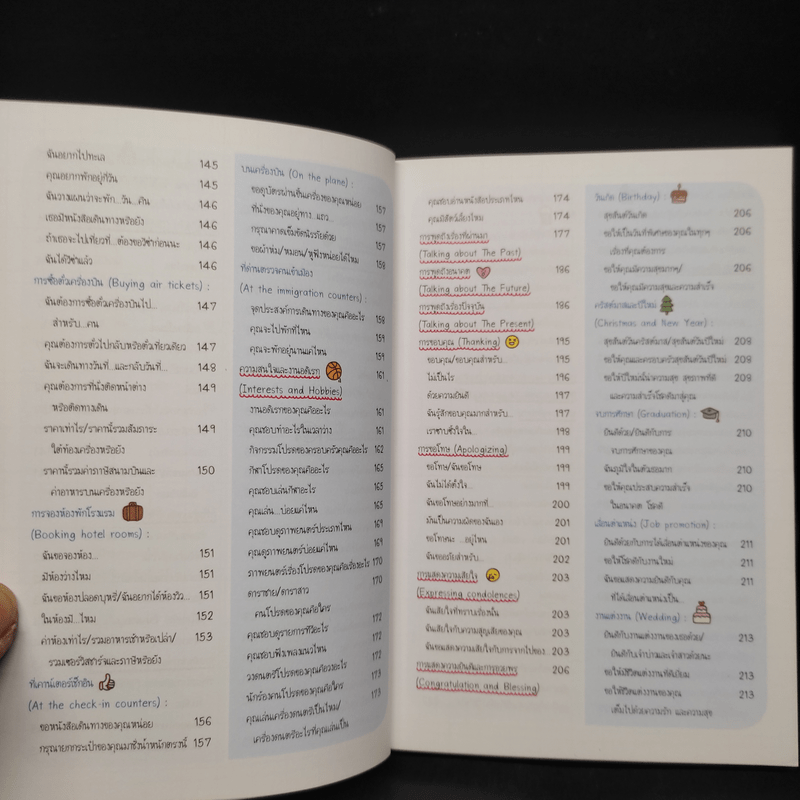 ฉันอยากไปทะเล 145
คุณอยากพักอยู่กี่วัน 145
ฉันวางแผนว่าจะพัก...วัน...คืน 146
เธอมีหนังสือเดินทางหรือยัง 146
ถ้าเธอจะไปเที่ยวที่...ต้องขอวีซ่าก่อนนะ 146
ฉันได้วีซ่าแล้ว 146
การซื้อตั๋วเครื่องบิน (Buying air tickets) :
ฉันต้องการซื้อตั๋วเครื่องบินไป... 147
สำหรับ...คน
คุณต้องการตั๋วไปกลับหรือตั๋วเที่ยวเดียว 147
ฉันจะเดินทางวันที่...และกลับวันที่... 148
คุณต้องการที่นั่งติดหน้าต่าง 149
หรือติดทางเดิน
ราคาเท่าไร/ราคานี้รวมสัมภาระ 149
ใต้ท้องเครื่องหรือยัง
ราคานี้รวมค่าภาษีสนามบินและ 150
ค่าอาหารบนเครื่องหรือยัง
การจองห้องพักโรงแรม
(Booking hotel rooms) :
ฉันขอจองห้อง... 151
มีห้องว่างไหม 151
ฉันขอห้องปลอดบุหรี่/ฉันอยากได้ห้องวิว... 151
ในห้องมี...ไหม 152
ค่าห้องเท่าไร/รวมอาหารเช้าหรือเปล่า/ 153
รวมเซอร์วิสชาร์จและภาษีหรือยัง
ที่เคาน์เตอร์เช็กอิน
(At the check-in counters) :
ขอหนังสือเดินทางของคุณหน่อย 156
กรุณายกกระเป๋าของคุณมาชั่งน้ำหนักตรงนี้ 157
บนเครื่องบิน (On the plane) :
ขอดูบัตรผ่านขึ้นเครื่องของคุณหน่อย 157
ที่นั่งของคุณอยู่ทาง...แถว... 157
กรุณาคาดเข็มขัดนิรภัยด้วย 157
ขอผ้าห่ม/หมอน/หูฟังหน่อยได้ไหม 158
ที่ด่านตรวจคนเข้าเมือง
(At the immigration counters) :
จุดประสงค์การเดินทางของคุณคืออะไร 158
คุณจะไปพักที่ไหน 159
คุณจะพักอยู่นานแค่ไหน 159
ความสนใจและงานอดิเรก 161
(Interests and Hobbies)
งานอดิเรกของคุณคืออะไร 161
คุณชอบทำอะไรในเวลาว่าง 161
กิจกรรมโปรดของครอบครัวคุณคืออะไร 162
กีฬาโปรดของคุณคืออะไร 165
คุณชอบเล่นกีฬาอะไร 165
คุณเล่น...บ่อยแค่ไหน 165
คุณชอบดูภาพยนตร์ประเภทไหน 169
คุณดูภาพยนตร์บ่อยแค่ไหน 169
ภาพยนตร์เรื่องโปรดของคุณคือเรื่องอะไร 170
ดาราชาย/ดาราสาว 170
คนโปรดของคุณคือใคร
คุณชอบดูรายการทีวีอะไร 172
คุณชอบฟังเพลงแนวไหน 172
วงดนตรีโปรดของคุณคือวงอะไร 172
นักร้องคนโปรดของคุณคือใคร 173
คุณเล่นเครื่องดนตรีเป็นไหม/ 173
เครื่องดนตรีอะไรที่คุณเล่นเป็น
คุณชอบอ่านหนังสือประเภทไหน 174
คุณมีสัตว์เลี้ยงไหม 174
การพูดถึงเรื่องที่ผ่านมา 177
(Talking about The Past)
การพูดถึงอนาคต 186
(Talking about The Future)
การพูดถึงเรื่องปัจจุบัน 186
(Talking about The Present)
การขอบคุณ (Thanking) 195
ขอบคุณ/ขอบคุณสำหรับ... 195
ไม่เป็นไร 196
ด้วยความยินดี 197
ฉันรู้สึกขอบคุณมากสำหรับ... 197
เราซาบซึ้งใจใน... 198
การขอโทษ (Apologizing) 199
ขอโทษ/ฉันขอโทษ 199
ฉันไม่ได้ตั้งใจ... 199
ฉันขอโทษอย่างมากที่... 200
มันเป็นความผิดของฉันเอง 201
ขอโทษนะ ...อยู่ไหน 201
ฉันขออภัยสำหรับ... 202
การแสดงความเสียใจ 203
(Expressing condolences)
ฉันเสียใจที่ทราบเรื่องนั้น 203
ฉันเสียใจกับความสูญเสียของคุณ 203
ฉันขอแสดงความเสียใจกับการจากไปของ 203
การแสดงความยินดีและการอวยพร 206
(Congratulation and Blessing)
วันเกิด (Birthday) :
สุขสันต์วันเกิด 206
ขอให้เป็นวันที่พิเศษของคุณในทุกๆ 206
เรื่องที่คุณต้องการ
ขอให้คุณมีความสุขมากๆ/ 206
ขอให้คุณมีความสุขและความสำเร็จ
คริสต์มาสและปีใหม่
(Christmas and New Year) :
สุขสันต์วันคริสต์มาส/สุขสันต์วันปีใหม่ 208
ขอให้คุณและครอบครัวสุขสันต์วันปีใหม่ 208
ขอให้ปีใหม่นี้นำความสุข สุขภาพที่ดี 208
และความสำเร็จโชคดีมาสู่คุณ
จบการศึกษา (Graduation) :
ยินดีด้วย/ยินดีกับการ 210
จบการศึกษาของคุณ
ฉันภูมิใจในตัวเธอมาก 210
ขอให้คุณประสบความสำเร็จ 210
ในอนาคต โชคดี
เลื่อนตำแหน่ง (Job promotion) :
ยินดีด้วยกับการได้เลื่อนตำแหน่งของคุณ 211
ขอให้โชคดีกับงานใหม่ 211
ฉันขอแสดงความยินดีกับคุณ 211
ที่ได้เลื่อนตำแหน่งเป็น...
งานแต่งงาน (Wedding) :
ยินดีกับงานแต่งงานของเธอด้วย/ 213
ยินดีกับเจ้าบ่าวและเจ้าสาวด้วยนะ
ขอให้มีชีวิตแต่งงานที่ดีเยี่ยม 213
ขอให้ชีวิตแต่งงานของคุณ 213
เต็มไปด้วยความรัก และความสุข